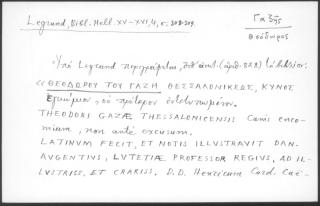 Legrand, Bibl. Hell. XV-XVI, 4, σ. 208-209.
Γαζῆς
Θεόδωρος
Ὑπὸ Legrand περιγράφεται, ὑπ' ἀριθ. (ἀριθ. 828)
«ΘΕΟΔΩΡΟΥ ΤΟΥ ΓΑΖΗ ΘΕΣΣΑΛΟΝΙΚΕΩΣ, ΚΥΝΟΣ
ἐγκώμιον, οὐ πρότερον ἐντετυπωμένον.
THEODORI GAZÆ THESSALONICENSIS Canis enco-
mium, non antè excusum.
LATINUM FECIT, ET NOTIS ILLUSTRAVIT DAN.
AUGENTIUS, LUTETIÆ PROFESSOR REGIUS, AD IL-
LUSTRISS. ET CRARISS. D.D. Henricum Card. Cae-